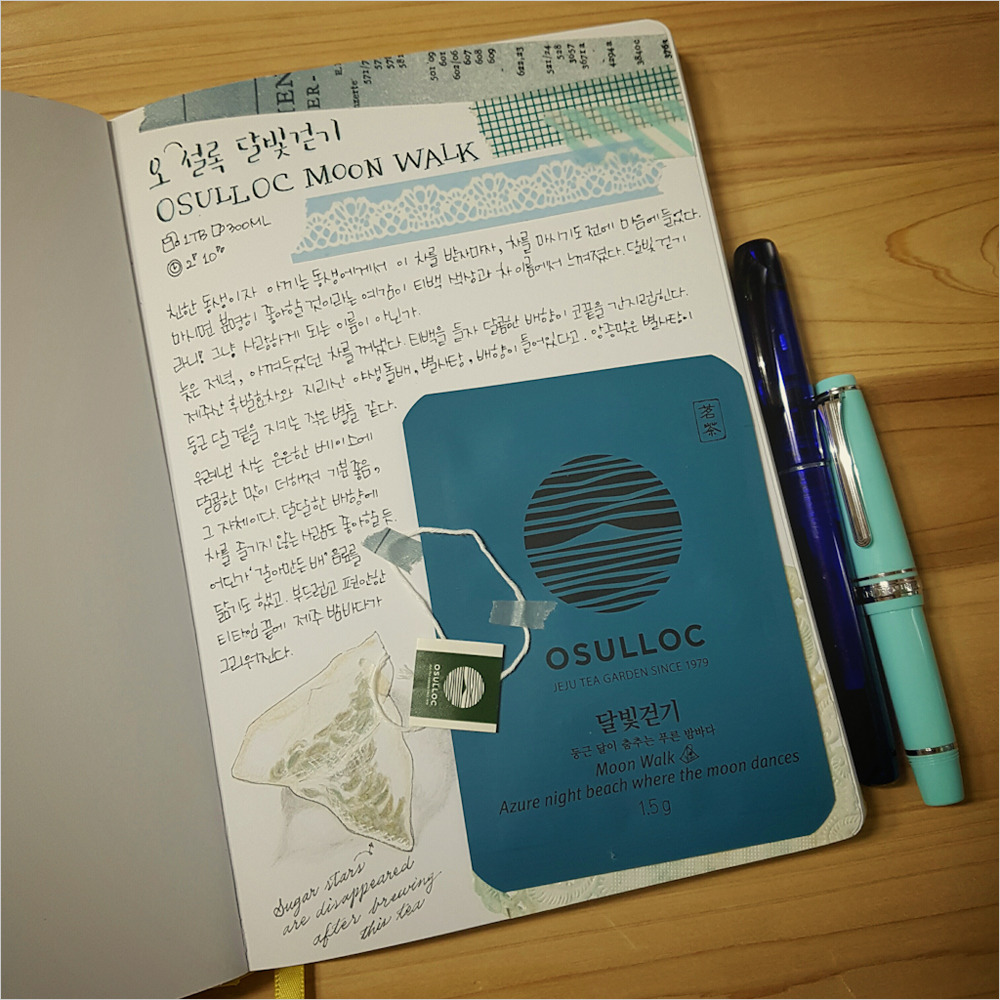 IEN
ER-
zerte
571/7
57
581
501 09
601
602/06
607
608
609
622,23
521/24
528
3057
3671a
4294a
3840c
376a
오설록 달빛걷기
OSULLOC MOON WALK
1TB 300ML
2' 10"
친한 동생이자 아끼는 동생에게서 이 차를 받자마자, 차를 마시기도 전에 마음에 들었다.
마시면 분명히 좋아할 것이라는 예감이 티백 색상과 차 이름에서 느껴졌다. 달빛 걷기
라니! 그냥 사랑하게 되는 이름이 아닌가.
늦은 저녁, 아껴두었던 차를 꺼냈다. 티백을 들자 달콤한 배향이 코끝을 간지럽힌다.
제주산 후발효차와 지리산 야생 돌배, 별사탕, 배향이 들어있다고. 앙증맞은 별사탕이
둥근 달 곁을 지키는 작은 별들 같다.
우려낸 차는 은은한 베이스에
달콤한 맛이 더해져 기분 좋음,
그 자체이다. 달달한 배향에
차를 즐기지 않는 사람도 좋아할 듯.
어딘가 '갈아만든 배' 음료를
닮기도 했고. 부드럽고 편안한
티타임 끝에 제주 밤바다가
그리워진다.
茗茶
OSULLOC
JEJU TEA GARDEN SINCE 1979
달빛걷기
둥근 달이 춤추는 푸른 밤바다
Moon Walk
Azure night beach where the moon dances
1.5 g
OSULLOC
Sugar stars
are disappeared
after brewing
this tea